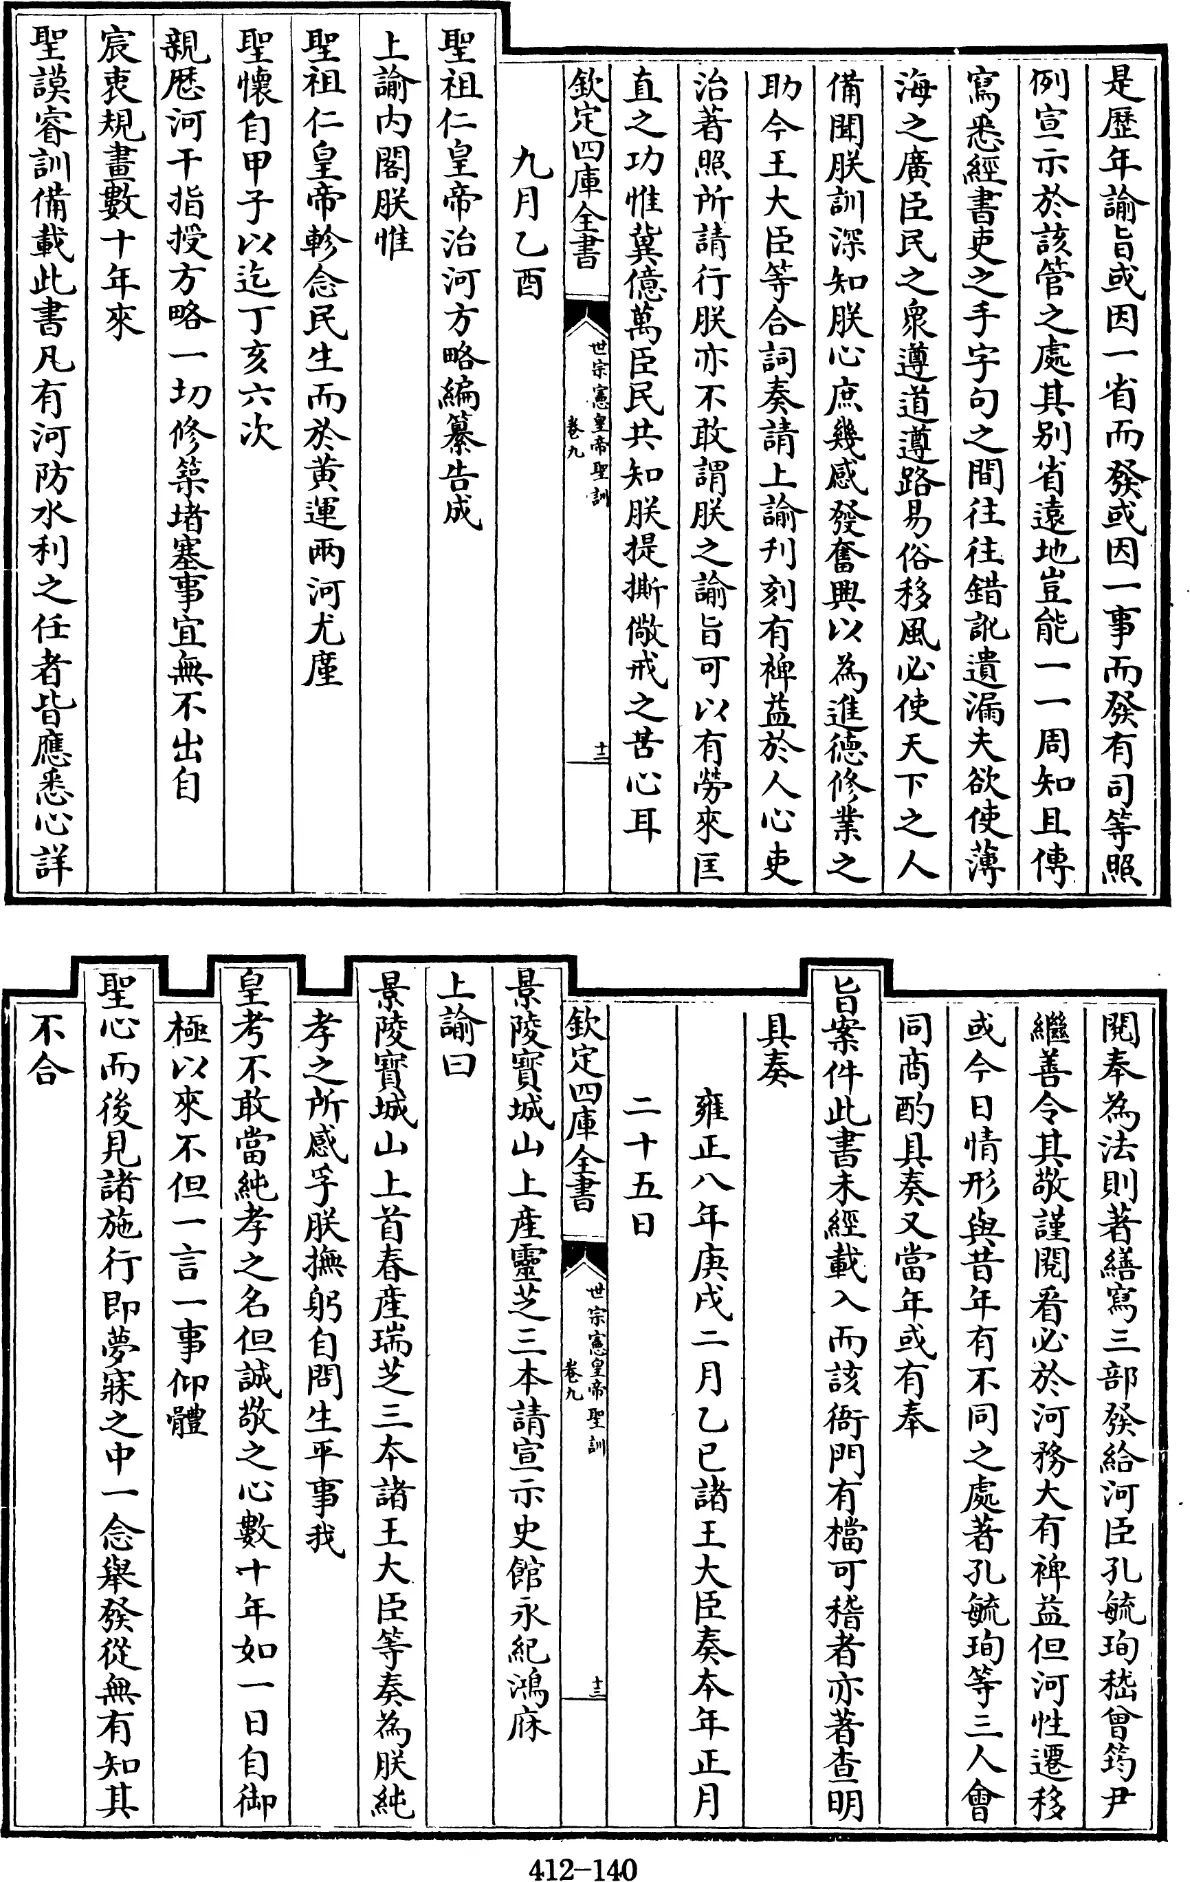 是歷年諭旨或因一省而發或因一事而發有司等照
例宣示於該管之處其別省遠地豈能一一周知且傳
寫悉經書吏之手字句之間往往錯訛遺漏夫欲使薄
海之廣臣民之衆遵道遵路易俗移風必使天下之人
備聞朕訓深知朕心庶幾感發奮興以為進德修業之
助今王大臣等合詞奏請上諭刋刻有裨益於人心吏
治著照所請行朕亦不敢謂朕之諭旨可以有勞來匡
直之功惟冀億萬臣民共知朕提撕儆戒之苦心耳
欽定四庫全書
世宗憲皇帝聖訓
卷九
十二
九月乙酉
聖祖仁皇帝治河方略編纂告成
上諭内閣朕惟
聖祖仁皇帝軫念民生而於黄運兩河尤廑
聖懷自甲子以迄丁亥六次
親歴河干指授方略一切修築堵塞事宜無不出自
宸衷規畫數十年來
聖謨睿訓備載此書凡有河防水利之任者皆應悉心詳
閱奉為法則著繕寫三部發給河臣孔毓珣嵇曾筠尹
繼善令其敬謹閱看必於河務大有裨益但河性遷移
或今日情形與昔年有不同之處著孔毓珣等三人會
同商酌具奏又當年或有奉
旨案件此書未經載入而該衙門有檔可稽者亦著查明
具奏
雍正八年庚戌二月乙巳諸王大臣奏本年正月
二十五日
欽定四庫全書
世宗憲皇帝聖訓
卷九
十三
景陵寳城山上產靈芝三本請宣示史館永紀鴻庥
上諭曰
景陵寳城山上首春產瑞芝三本諸王大臣等奏為朕純
孝之所感孚朕撫躬自問生平事我
皇考不敢當純孝之名但誠敬之心數十年如一日自御
極以來不但一言一事仰體
聖心而後見諸施行即夢寐之中一念舉發從無有知其
不合
412-140